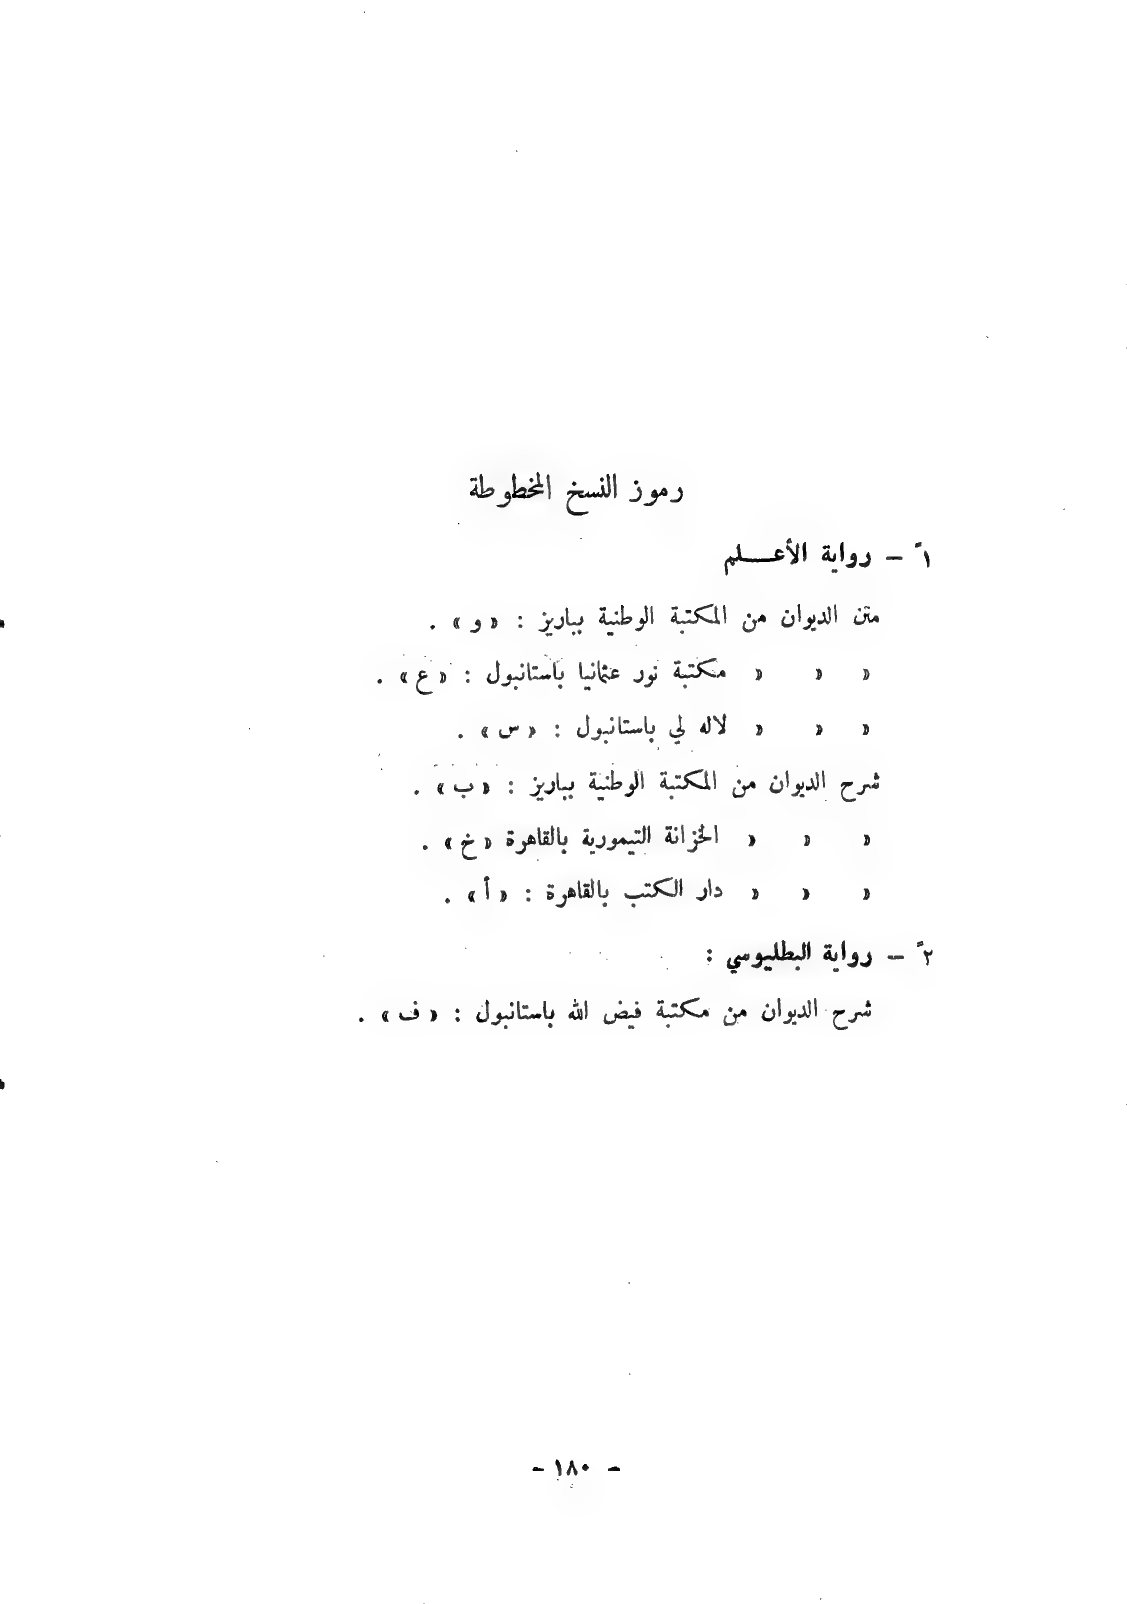 رموز النسخ المخطوطة
١ً – رواية الأعـــلم
متن الديوان من المكتبة الوطنية بباريز : « و » .
« « « مكتبة نور عثمانيا باستانبول : « ع » .
« « « لاله لي باستانبول : « س » .
شرح الديوان من المكتبة الوطنية بباريز : « ب » .
« « « الخزانة التيمورية بالقاهرة « خ » .
« « « دار الكتب بالقاهرة : « أ » .
٢ً – رواية البطليوسي :
شرح الديوان من مكتبة فيض الله باستانبول : « ف » .
- ١٨٠ -